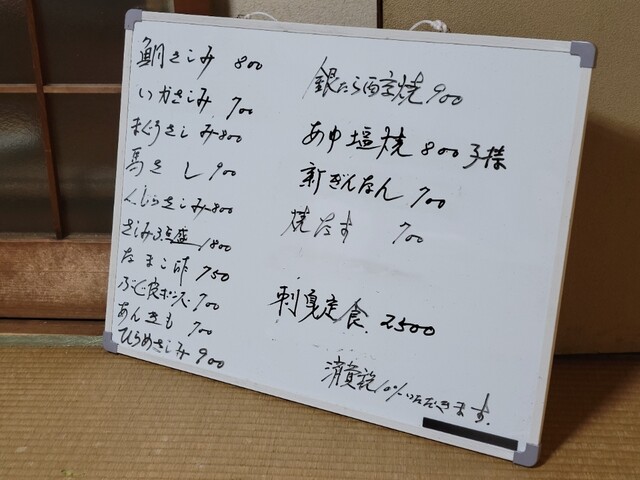 鯛さしみ 800
いかさしみ 700
まぐろさしみ 800
馬さし 900
くじらさしみ 800
さしみ3点盛 1800
なまこ酢 750
ふぐ皮ポン酢 700
あんきも 700
ひらめさしみ 900
銀だら西京焼 900
あゆ塩焼 800 子様
新ぎんなん 700
焼なす 700
刺身定食 2500
消費税10%いただきます。